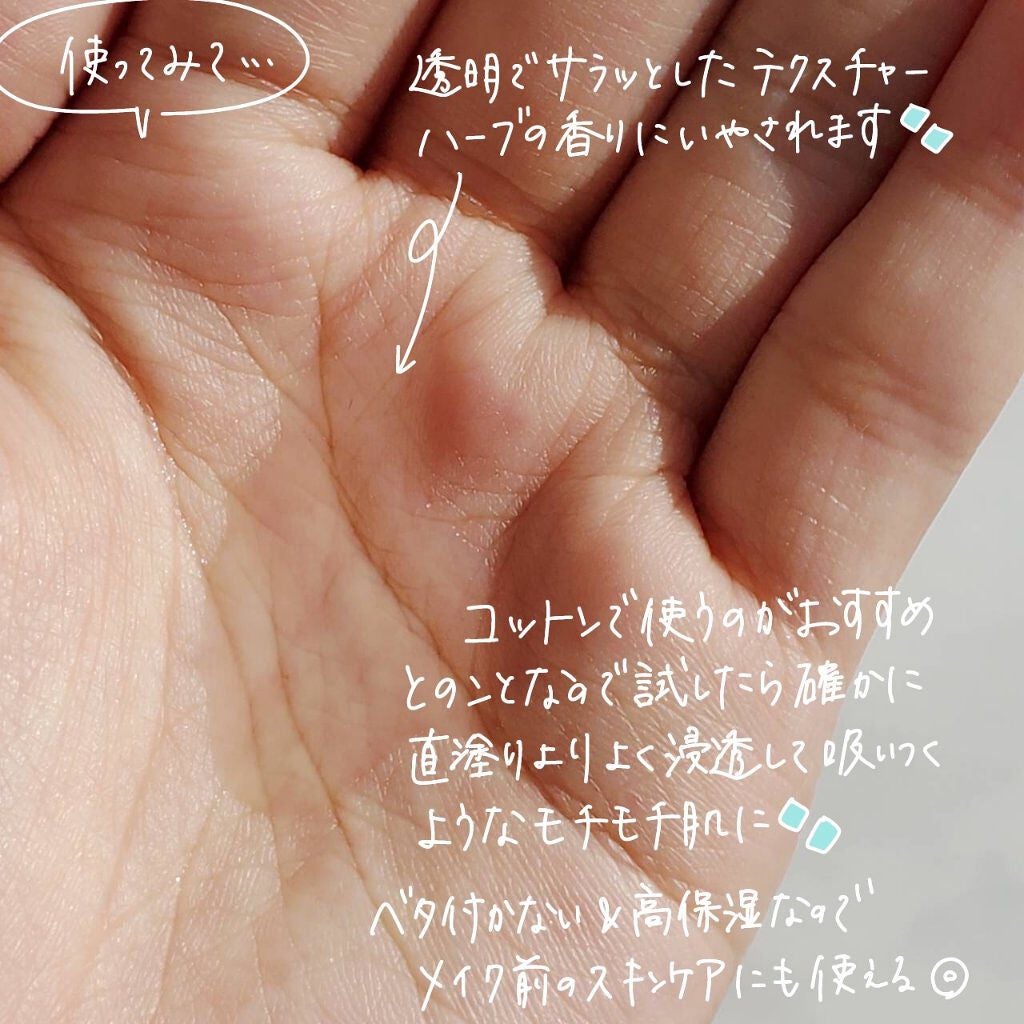 使ってみて…
透明でサラッとしたテクスチャー
ハーブの香りにいやされます
コットンで使うのがおすすめ
とのことなので試したら確かに
直塗りよりよく浸透して吸いつく
ようなモチモチ肌に
ベタ付かない&高保湿なので
メイク前のスキンケアにも使える◎